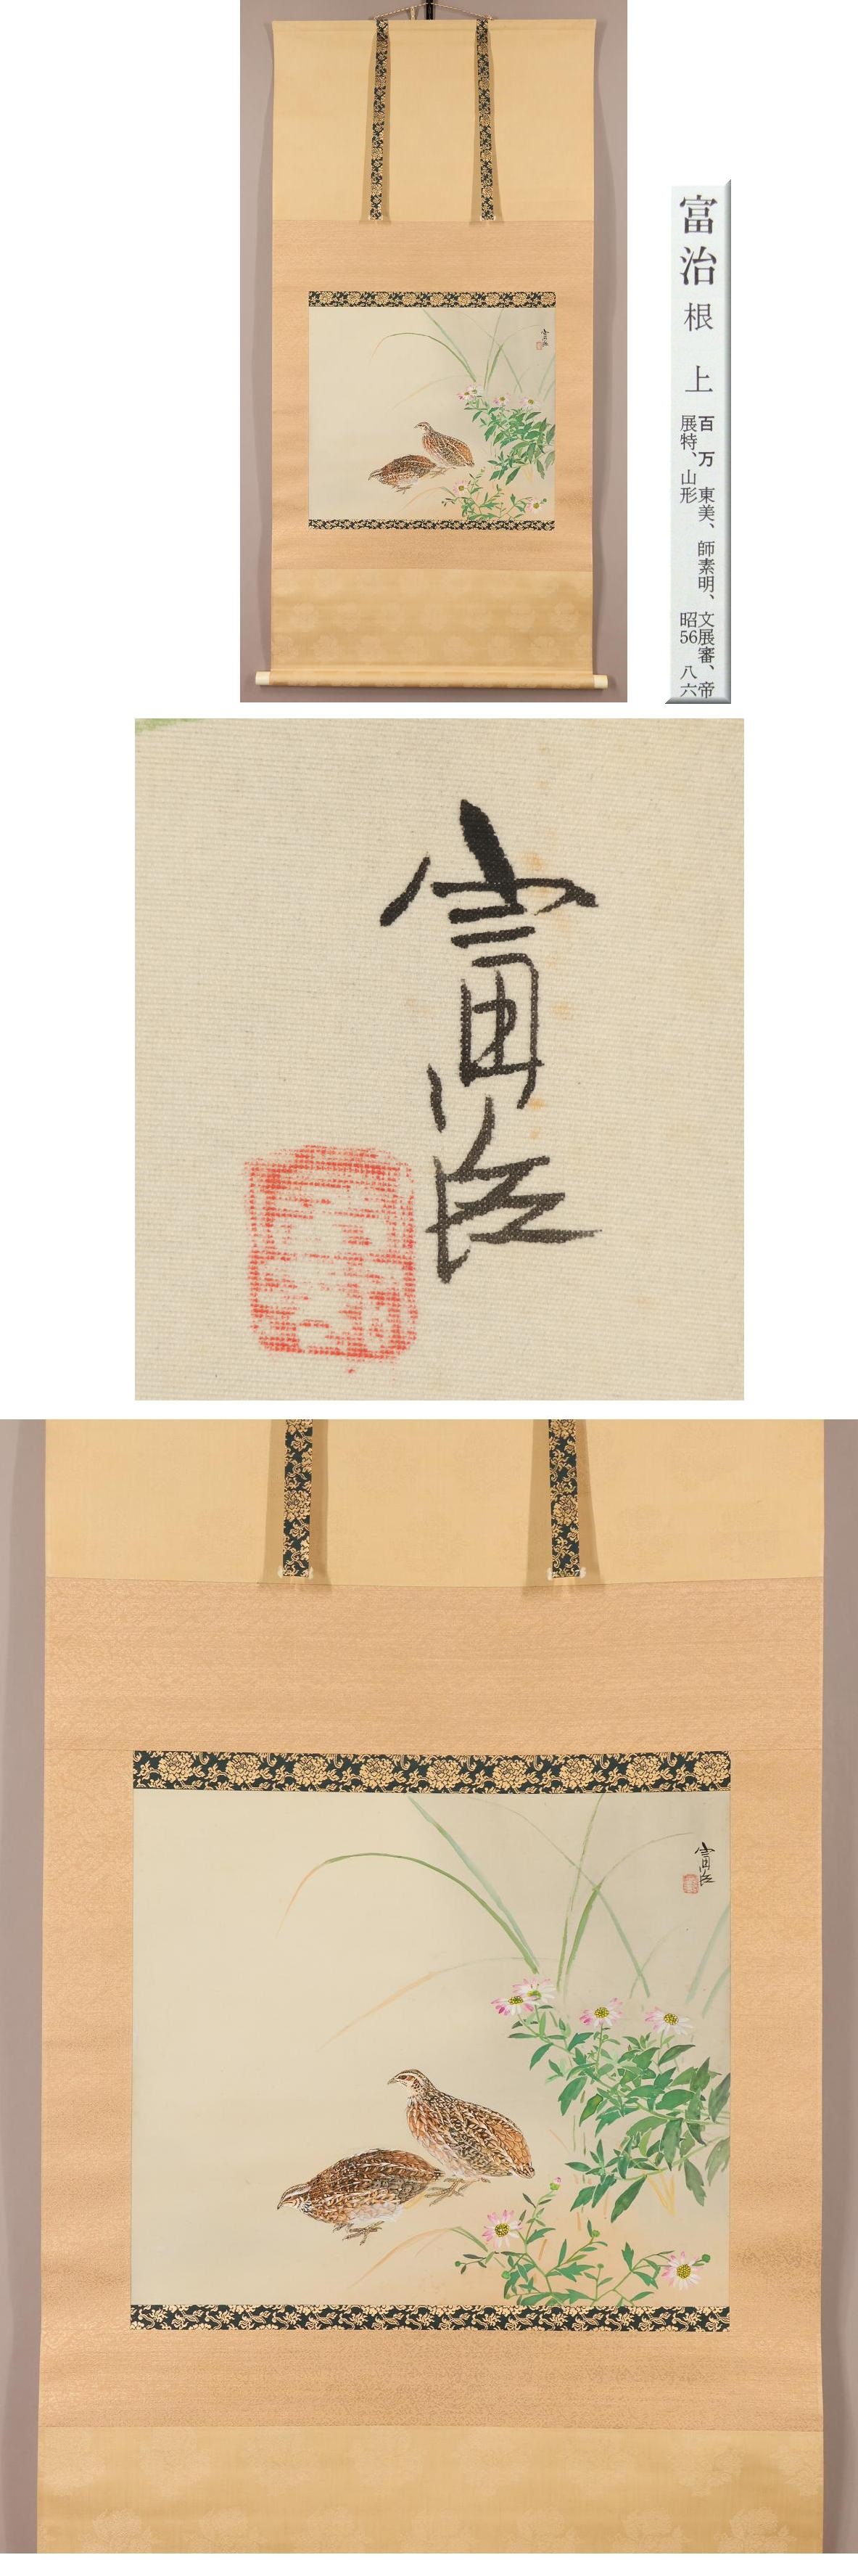 富治
富治 根上 百万 東美、師素明、文展審、帝
展特、山形 昭56 八六
富治
富治